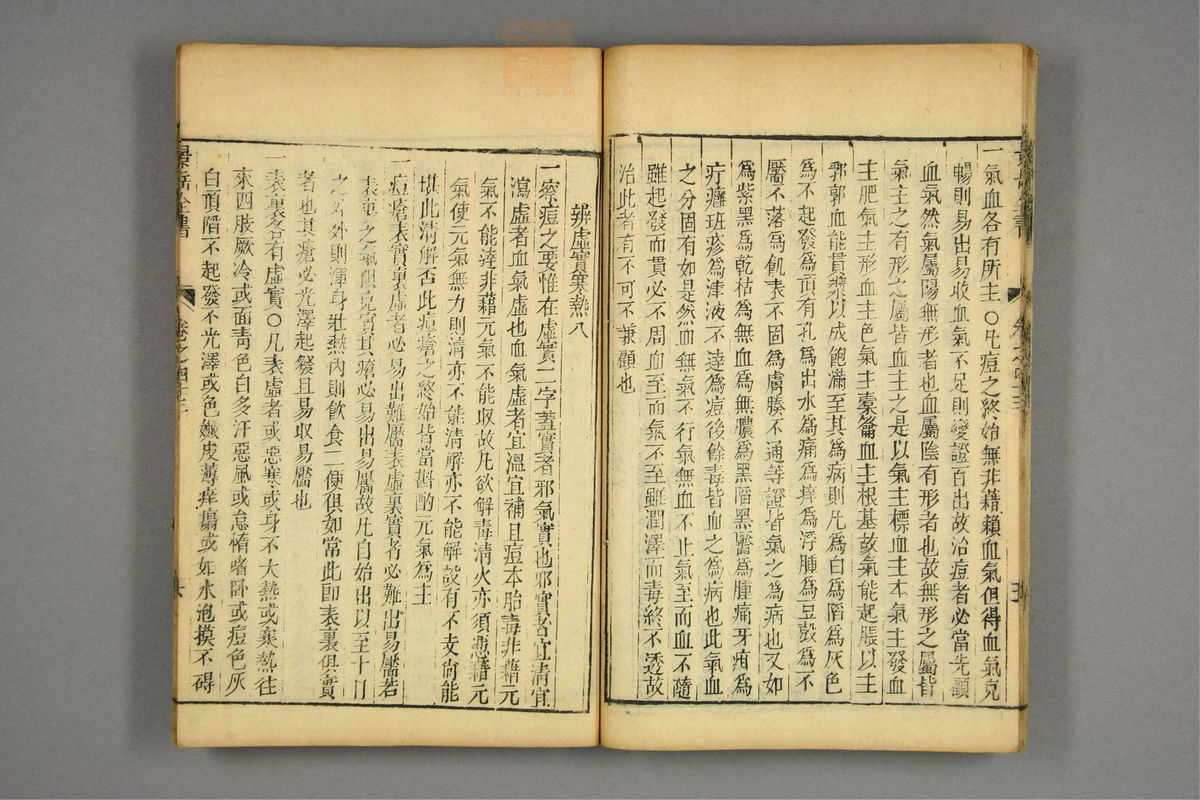 一氣血各有所主○凡痘之終始無非藉賴血氣但得血氣充
暢則易出易收血氣不足則變證百出故治痘者必當先顧
血氣然氣屬陽無形者也血屬陰有形者也故無形之屬皆
氣主之有形之屬皆血主之是以氣主標血主本氣主發血
主肥氣主形血主色氣主橐籥血主根基故氣能起脹以主
郛郭血能貫漿以成飽滿至其為病則凡為白為陷為灰色
為不起發為頂有孔為出水為痛為痒為浮腫為豆殼為不
靨不落為飢表不固為膚腠不通等證皆氣之為病也又如
為紫黑為乾枯為無血為無膿為黑陷黑靨為腫痛牙疳為
疔癰斑疹為津液不達為痘後餘毒皆血之為病也此氣血
之分固有如是然血無氣不行氣無血不止氣至而血不隨
雖起發而貫必不周血至而氣不至雖潤澤而毒終不透故
治此者有不可不兼顧也
辨虛實寒熱八
一察痘之要惟在虛實二字蓋實者邪氣實也邪實者宜清宜
瀉虛者血氣虛也血氣虛者宜溫宜補且痘本胎毒非藉元
氣不能達非藉元氣不能收故凡欲解毒清火亦須憑藉元
氣使元氣無力則清亦不能清解亦不能解設有不支尚能
堪此清解否此痘瘡之終始皆當斟酌元氣為主
一痘瘡表實裏虛者必易出難靨表虛裏實者必難出易靨若
表裏之氣俱充實其瘡必易出易靨故凡自始出以至十日
之 外則渾身壯熱內則飲食二便俱如常此卽表裏俱實
者也其瘡必光澤起發且易收易靨也
一表裏各有虛實○凡表虛者或惡寒或身不大熱或寒熱往
來四肢厥冷或面青色白多汗惡風或怠惰嗜臥或痘色灰
白頂陷不起發不光澤或色嫩皮薄痒塌或如水泡摸不碍
景岳全書
卷之四十三